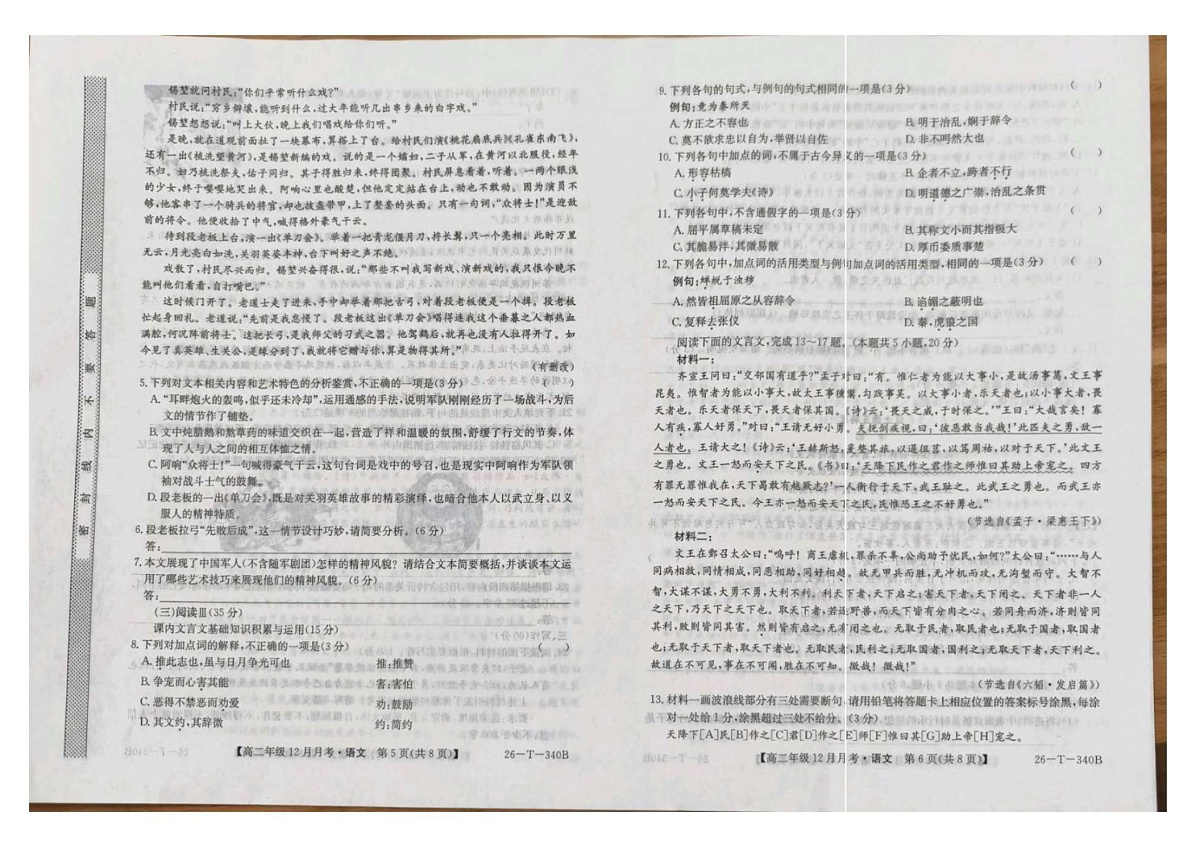 锡堃就问村民:“你们平常听什么戏?”
村民说:“穷乡僻壤,能听到什么,过大年能听几出串乡来的白字戏。”
锡堃想想说:“叫上大伙,晚上我们唱戏给你们听。”
是晚,就在道观前面扯了一块幕布,算搭上了台。给村民们演《桃花扇底兵》《孔雀东南飞》,
还有一出《梳洗望黄河》,是锡堃新编的戏。说的是一个孀妇,二子从军,在黄河以北服役,经年
不归。妇乃梳洗祭天,佑子同归。其子得胜归来,终得团聚。村民屏息看着,听着。一两个眼浅
的少女,终于嘤嘤地哭出来。阿响心里也酸楚,但他定定站在台上,动也不敢动。因为演员不
够,他客串了一个骑兵的将官,却也披盔带甲,上了整套的头面。只有一句词,“众将士!”是迎敌
前的将令。他便收拾了中气,喊得格外豪气干云。
待到段老板上台,演一出《单刀会》。举着一把青龙偃月刀,捋长髯,只一个亮相。此时万里
无云,月光亮白如洗,关羽英姿丰神,台下叫好之声不绝。
戏散了,村民尽兴而归。锡堃兴奋得很,说:“那些不叫我写新戏、演新戏的,我只恨今晚不
能叫他们看看,自打嘴巴。”
这时候门开了。老道士走了进来,手中却举着那把古弓,对着段老板便是一个揖。段老板
忙起身回礼。老道说:“先前是我怠慢了。段老板这出《单刀会》唱得连我这个垂暮之人都热血
满腔,何况阵前将士。这把长弓,是我师父的习武之器。他驾鹤后,就再也没有人拉得开了。如
今见了真英雄、生关公,是缘分到了,我就将它赠与你,算是物得其所。”
(有删改)
5.下列对文本相关内容和艺术特色的分析鉴赏,不正确的一项是(3分)( )
A.“耳畔炮火的轰鸣,似乎还未冷却”,运用通感的手法,说明军队刚刚经历了一场战斗,为后
文的情节作了铺垫。
B.文中炖腊鹅和熬草药的味道交织在一起,营造了祥和温暖的氛围,舒缓了行文的节奏,体
现了人与人之间的脉脉温情。
C.阿响“众将士!”一句喊得豪气干云,这句台词是戏中的号召,也是现实中阿响作为军队领
袖对战斗士气的鼓舞。
D.段老板的一出《单刀会》,既是对关羽英雄故事的精彩演绎,也暗合他本人以武立身、以义
服人的精神特质。
6.段老板拉弓“先败后成”,这一情节设计巧妙,请简要分析。(6分)
答:
7.本文展现了中国军人(不含随军剧团)怎样的精神风貌?请结合文本简要概括,并谈谈本文运
用了哪些艺术技巧来展现他们的精神风貌。(6分)
答:
(三)阅读Ⅲ(35分)
课内文言文基础知识积累与运用(15分)
8.下列对加点词的解释,不正确的一项是(3分)( )
A.推此志也,虽与日月争光可也 推:推赞
B.争宠而心害其能 害:害怕
C.恶得不禁恶而劝爱 劝:鼓励
D.其文约,其辞微 约:简约
【高二年级12月月考·语文 第5页(共8页)】 26-T-340B
9.下列各句的句式,与例句的句式相同的一项是(3分)( )
例句:竟为秦所灭
A.方正之不容也 B.明于治乱,娴于辞令
C.莫不欲求忠以自为,举贤以自佐 D.非不呺然大也
10.下列各句中加点的词,不属于古今异义的一项是(3分)( )
A.形容枯槁 B.企者不立,跨者不行
C.小子何莫学夫《诗》 D.明道德之广崇,治乱之条贯
11.下列各句中,不含通假字的一项是(3分)( )
A.屈平属草稿未定 B.其称文小而其指极大
C.其脆易泮,其微易散 D.厚币委质事楚
12.下列各句中,加点词的活用类型与例句加点词的活用类型,相同的一项是(3分)( )
例句:蝉蜕于浊秽
A.然皆祖屈原之从容辞令 B.谄媚之蔽明也
C.复释去张仪 D.秦,虎狼之国
阅读下面的文言文,完成13~17题。(本题共5小题,20分)
材料一:
齐宣王问曰:“交邻国有道乎?”孟子对曰:“有。惟仁者为能以大事小,是故汤事葛,文王事
昆夷。惟智者为能以小事大,故太王事獯鬻,勾践事吴。以大事小者,乐天者也;以小事大者,畏
天者也。乐天者保天下,畏天者保其国。《诗》云:‘畏天之威,于时保之。’”王曰:“大哉言矣!寡
人有疾,寡人好勇。”对曰:“王请无好小勇。夫抚剑疾视,曰:‘彼恶敢当我哉!’此匹夫之勇,敌一
人者也。王请大之!《诗》云:‘王赫斯怒,爰整其旅,以遏徂莒,以笃周祜,以对于天下。’此文王
之勇也。文王一怒而安天下之民。《书》曰:‘天降下民作之君作之师惟曰其助上帝宠之。四方
有罪无罪惟我在,天下曷敢有越厥志?’一人衡行于天下,武王耻之。此武王之勇也。而武王亦
一怒而安天下之民。今王亦一怒而安天下之民,民惟恐王之不好勇也。”
(节选自《孟子·梁惠王下》)
材料二:
文王在酆召太公曰:“呜呼!商王虐极,罪杀不辜,公尚助予忧民,如何?”太公曰:“……与人
同病相救,同情相成,同恶相助,同好相趋。故无甲兵而胜,无冲机而攻,无沟堑而守。大智不
智,大谋不谋,大勇不勇,大利不利。利天下者,天下启之;害天下者,天下闭之。天下者非一人
之天下,乃天下之天下也。取天下者,若逐野兽,而天下皆有分肉之心。若同舟而济,济则皆同
其利,败则皆同其害。然则皆有启之,无有闭之也。无取于民者,取民者也;无取于国者,取国者
也;无取于天下者,取天下者也。无取民者,民利之;无取国者,国利之;无取天下者,天下利之。
故道在不可见,事在不可闻,胜在不可知。微哉!微哉!”
(节选自《六韬·发启篇》)
13.材料一画波浪线部分有三处需要断句,请用铅笔将答题卡上相应位置的答案标号涂黑,每涂
对一处给1分,涂黑超过三处不给分。(3分)
天降下[A]民[B]作之[C]君[D]作之[E]师[F]惟曰其[G]助上帝[H]宠之。
【高二年级12月月考·语文 第6页(共8页)】 26-T-340B
密封线内不要答题